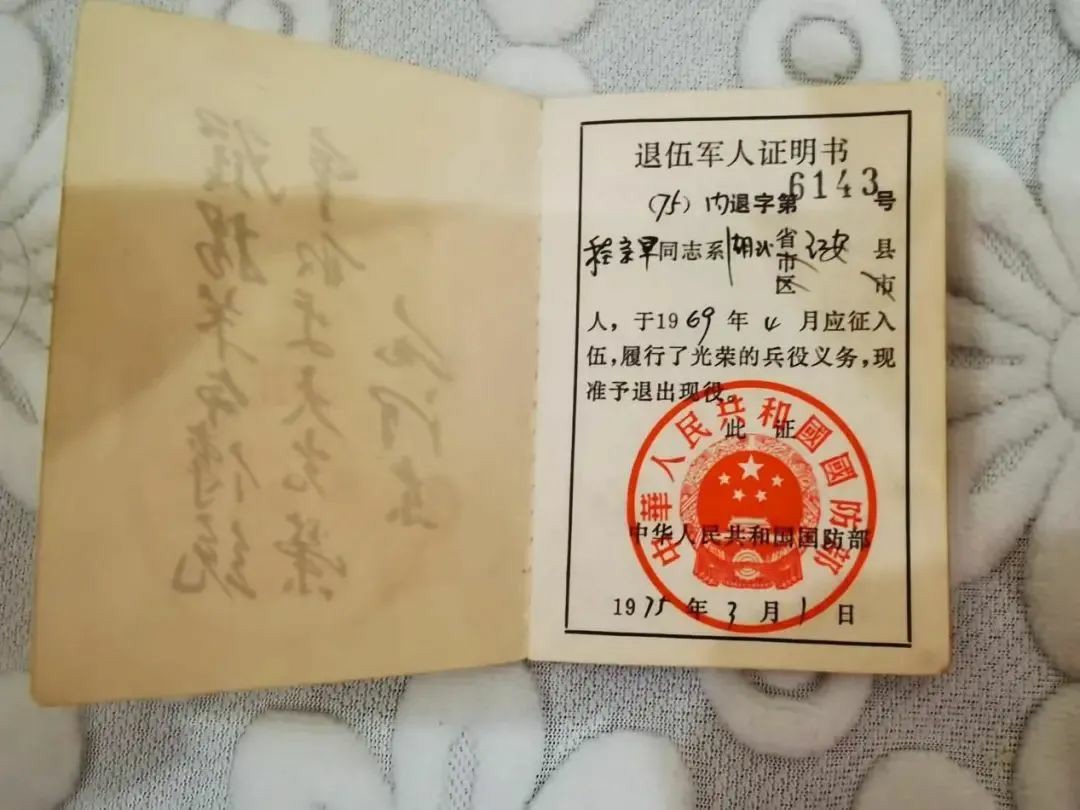 退伍军人证明书
(75)内退字第6143号
程早同志系湖北省市区红安县市
人，于1969年4月应征入
伍，履行了光荣的兵役义务，现
准予退出现役。
此证
中華人民共和國國防部
中华人民共和国国防部
1975年3月1日